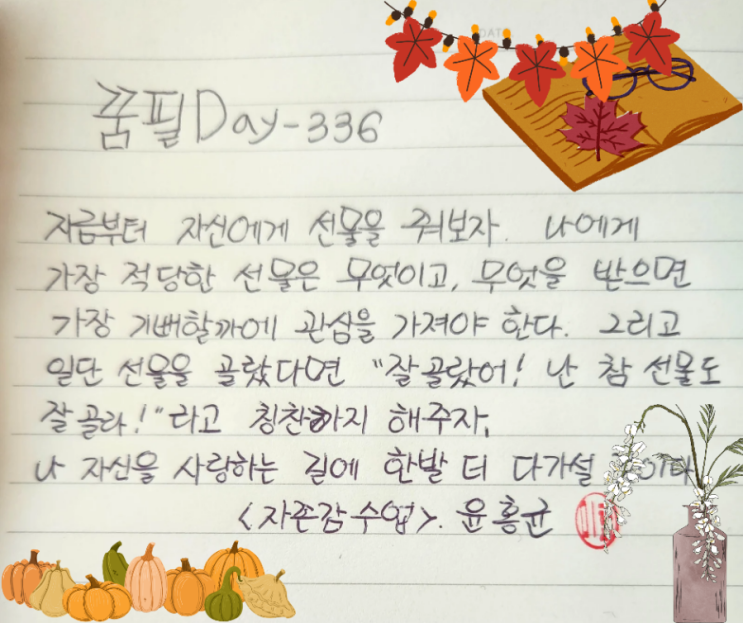 DATE
꿈필Day-336
지금부터 자신에게 선물을 줘보자. 나에게
가장 적당한 선물은 무엇이고, 무엇을 받으면
가장 기뻐할까에 관심을 가져야 한다. 그리고
일단 선물을 골랐다면 "잘골랐어! 난 참 선물도
잘골라!"라고 칭찬까지 해주자.
나 자신을 사랑하는 길에 한발 더 다가설
<자존감 수업>. 윤홍균